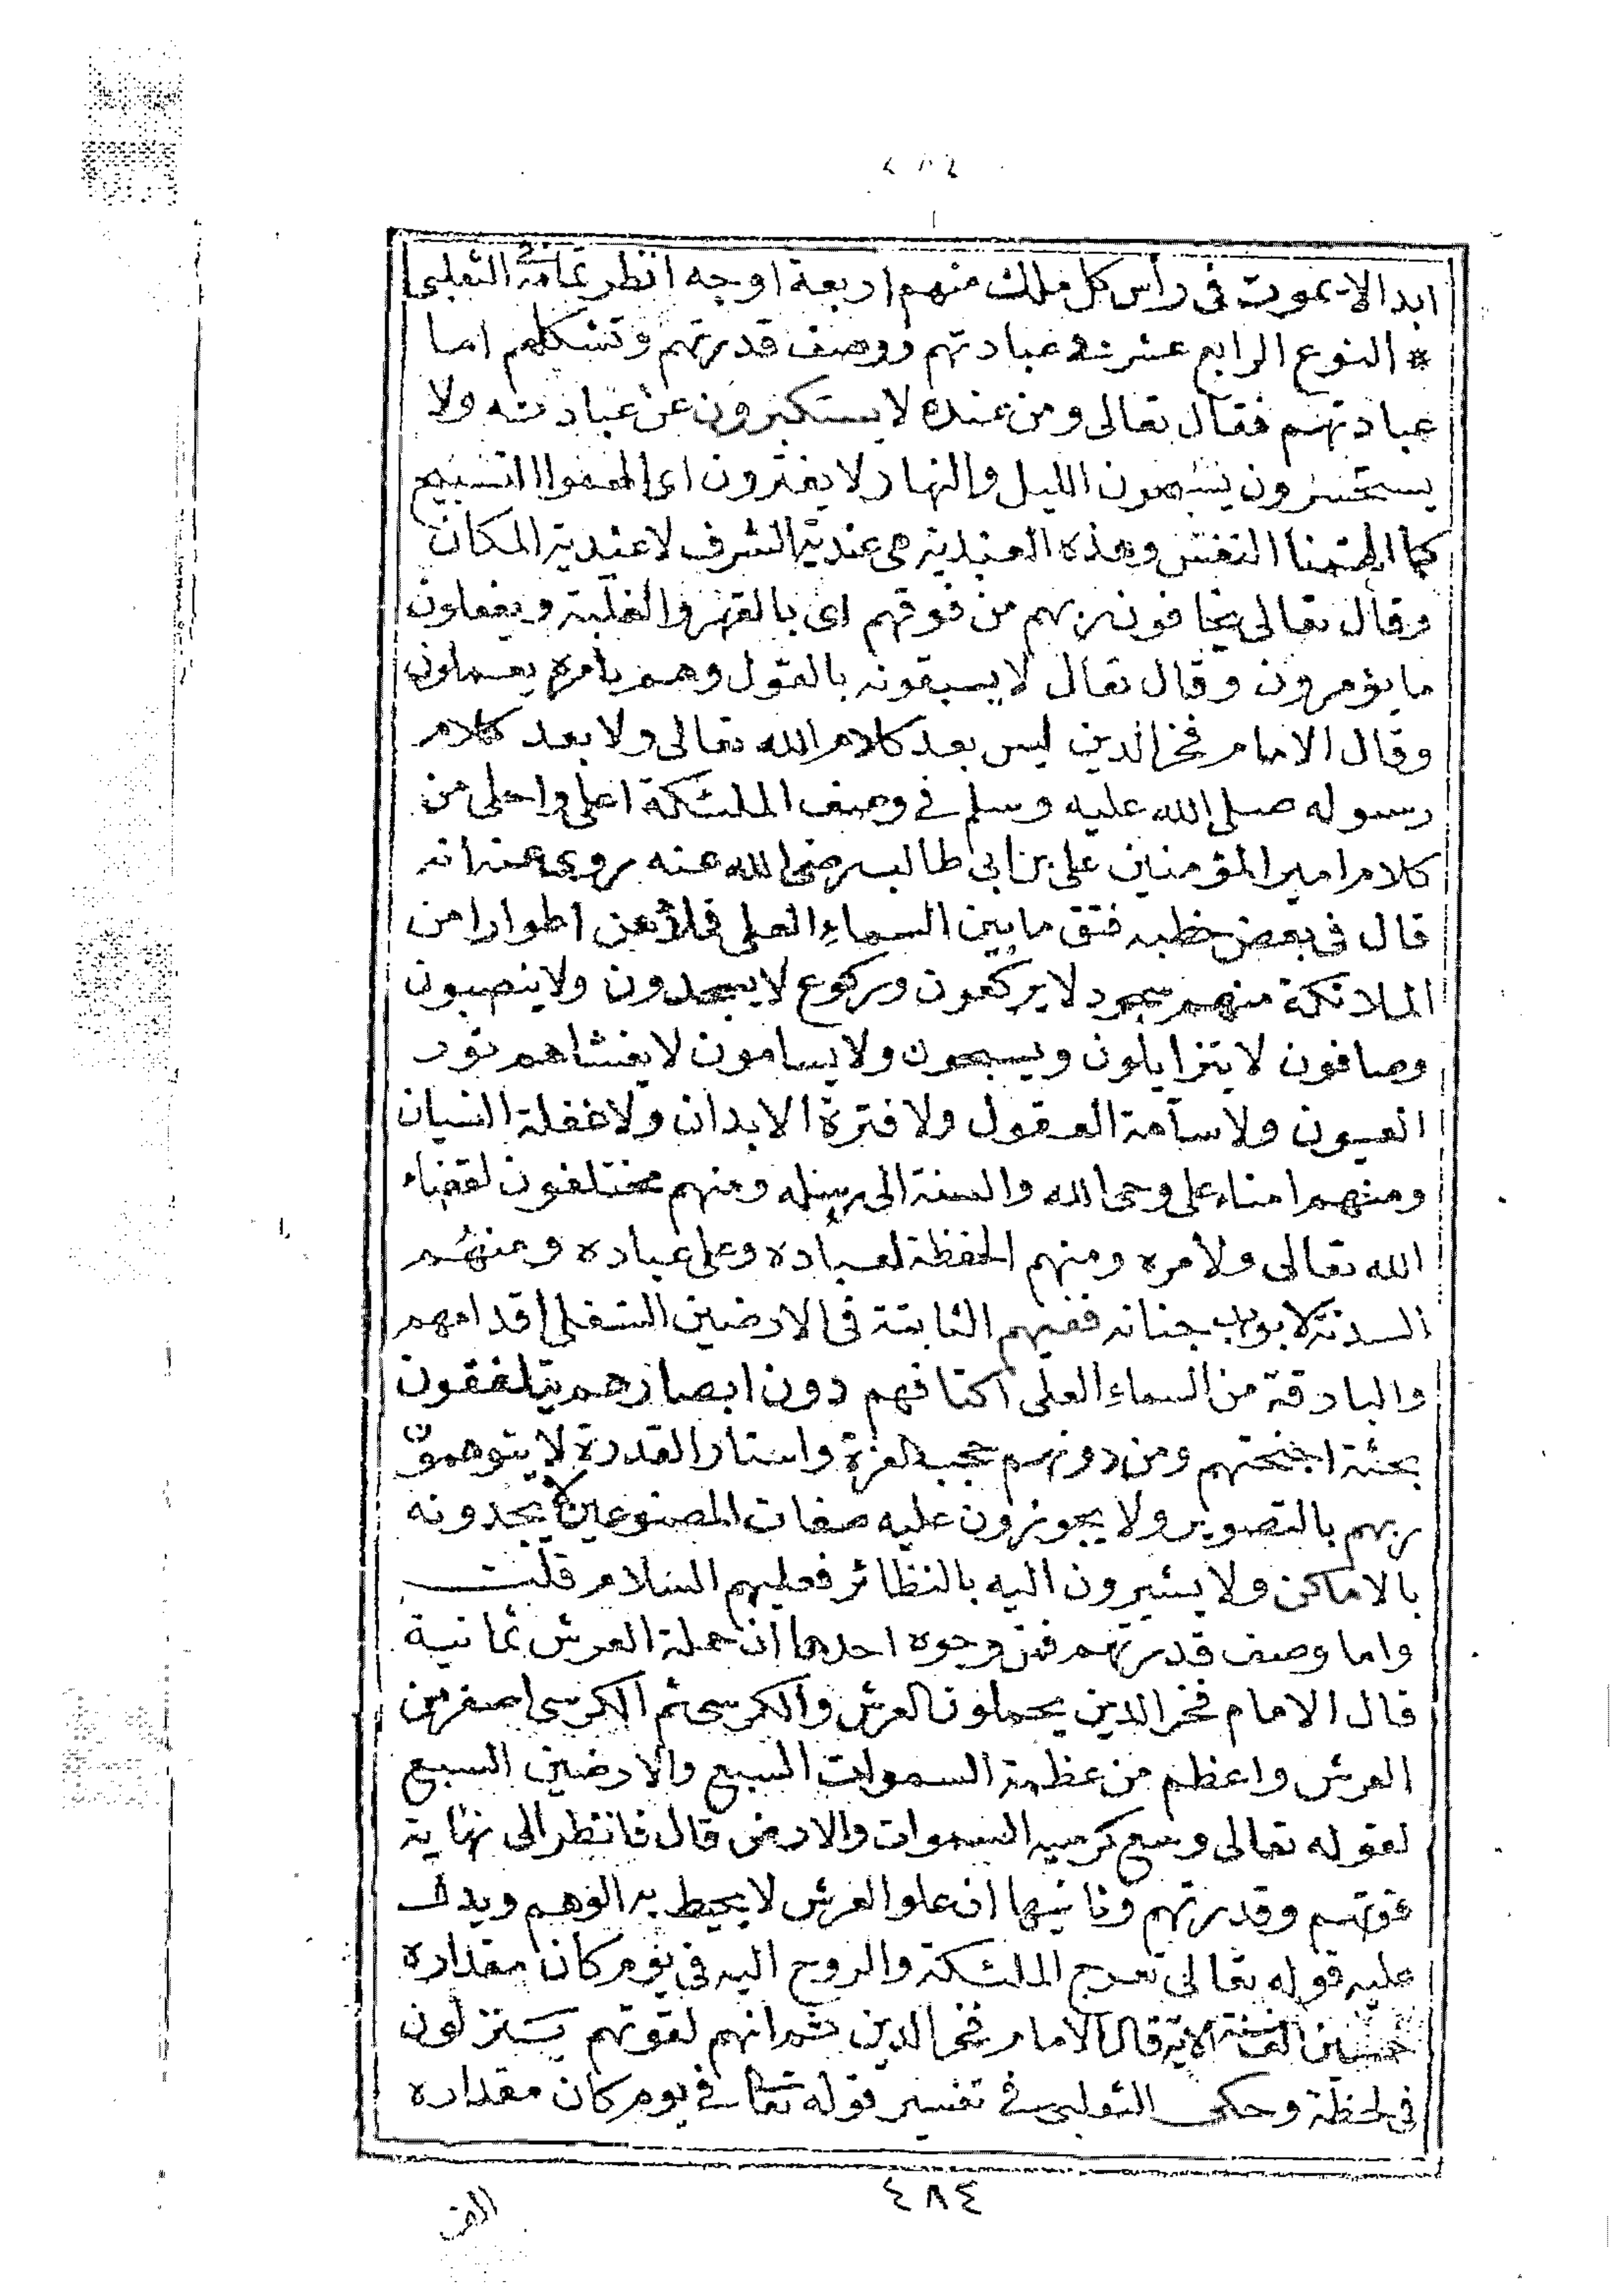 ٤٨٤
ابدا لا يموت في رأس كل ملك منهم اربعة اوجه انظر تمامه الثعلبى
* النوع الرابع عشر في عبادتهم ووصف قدرتهم وتشكلهم اما
عبادتهم فقال تعالى ومن عنده لا يستكبرون عن عبادته ولا
يستحسرون يسبحون الليل والنهار لا يفترون اى الهموا التسبيح
كما الهمنا النفس وهذه العندية هى عندية الشرف لا عندية المكان
وقال تعالى يخافون ربهم من فوقهم اى بالقهر والغلبة ويفعلون
ما يؤمرون وقال تعال لا يسبقونه بالقول وهم بامره يعملون
وقال الامام فخر الدين ليس بعد كلام الله تعالى ولا بعد كلام
رسوله صلى الله عليه وسلم في وصف الملئكة اعلى واحلى من
كلام امير المؤمنين على بن ابي طالب رضى الله عنه روى عنه انه
قال في بعض خطبه فتق ما بين السماء العلى فملأهن اطوارا من
الملائكة منهم سجود لا يركعون وركوع لا يسجدون ولا ينصبون
وصافون لا يتزايلون ويسبحون ولا يسامون لا يغشاهم نور
العيون ولا سآمة العقول ولا فترة الابدان ولا غفلة النسيان
ومنهم امناء على وحى الله والسنة الى رسله ومنهم مختلفون لقضاء
الله تعالى ولأمره ومنهم الحفظة لعباده وعلى عباده ومنهم
السدنة لابوب جنانه ففيهم الثابتة في الارضين السفلى اقدامهم
والبارقة من السماء العلى اكتافهم دون ابصارهم يتلفقون
بحثة اجنحتهم ومن دونهم حجب العزة واستار القدرة لا يتوهمون
ربهم بالتصوير ولا يجوزون عليه صفات المصنوعين لا يحدونه
بالاماكن ولا يشيرون اليه بالنظائر فعليهم السلام قلت
واما وصف قدرتهم فمن وجوه احدها ان حملة العرش ثمانية
قال الامام فخر الدين يحملون العرش والكرسى ثم الكرسى اصغر من
العرش واعظم من عظمة السموات السبع والارضين السبع
لقوله تعالى وسع كرسيه السموات والارض قال فانظر الى نهاية
قوتهم وقدرتهم وثانيها ان علو العرش لا يحيط به الوهم ويدل
عليه قوله تعالى تعرج الملئكة والروح اليه في يوم كان مقداره
خمسين الف سنة الاية قال الامام فخر الدين ثم انهم لقوتهم يستزلون
في لحظة وحكى الثعلبى في تفسير قوله تعالى في يوم كان مقداره
٤٨٤